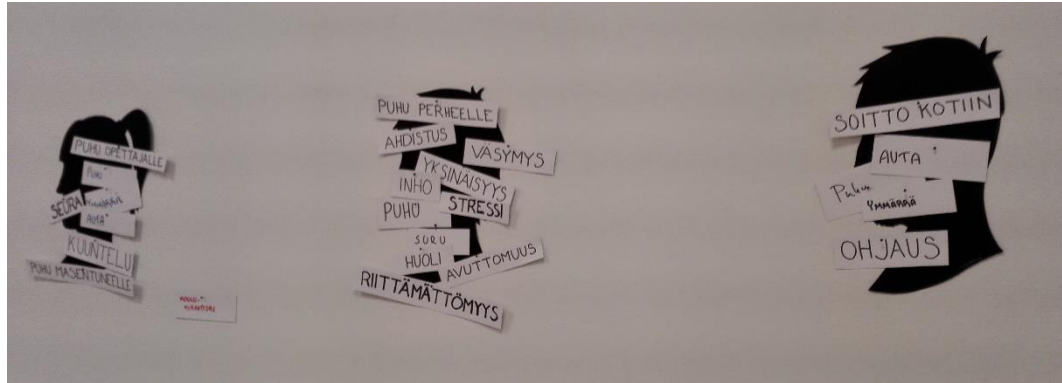 PUHU OPETTAJALLE
PUHU
SEURA
YMMÄRRÄ
AUTA
KUUNTELU
PUHU MASENTUNEELLE
PUHU PERHEELLE
AHDISTUS
VÄSYMYS
YKSINÄISYYS
INHO
PUHU
STRESSI
SURU
HUOLI
AVUTTOMUUS
RIITTÄMÄTTÖMYYS
SOITTO KOTIIN
AUTA
Puhu
YMMÄRRÄ
OHJAUS